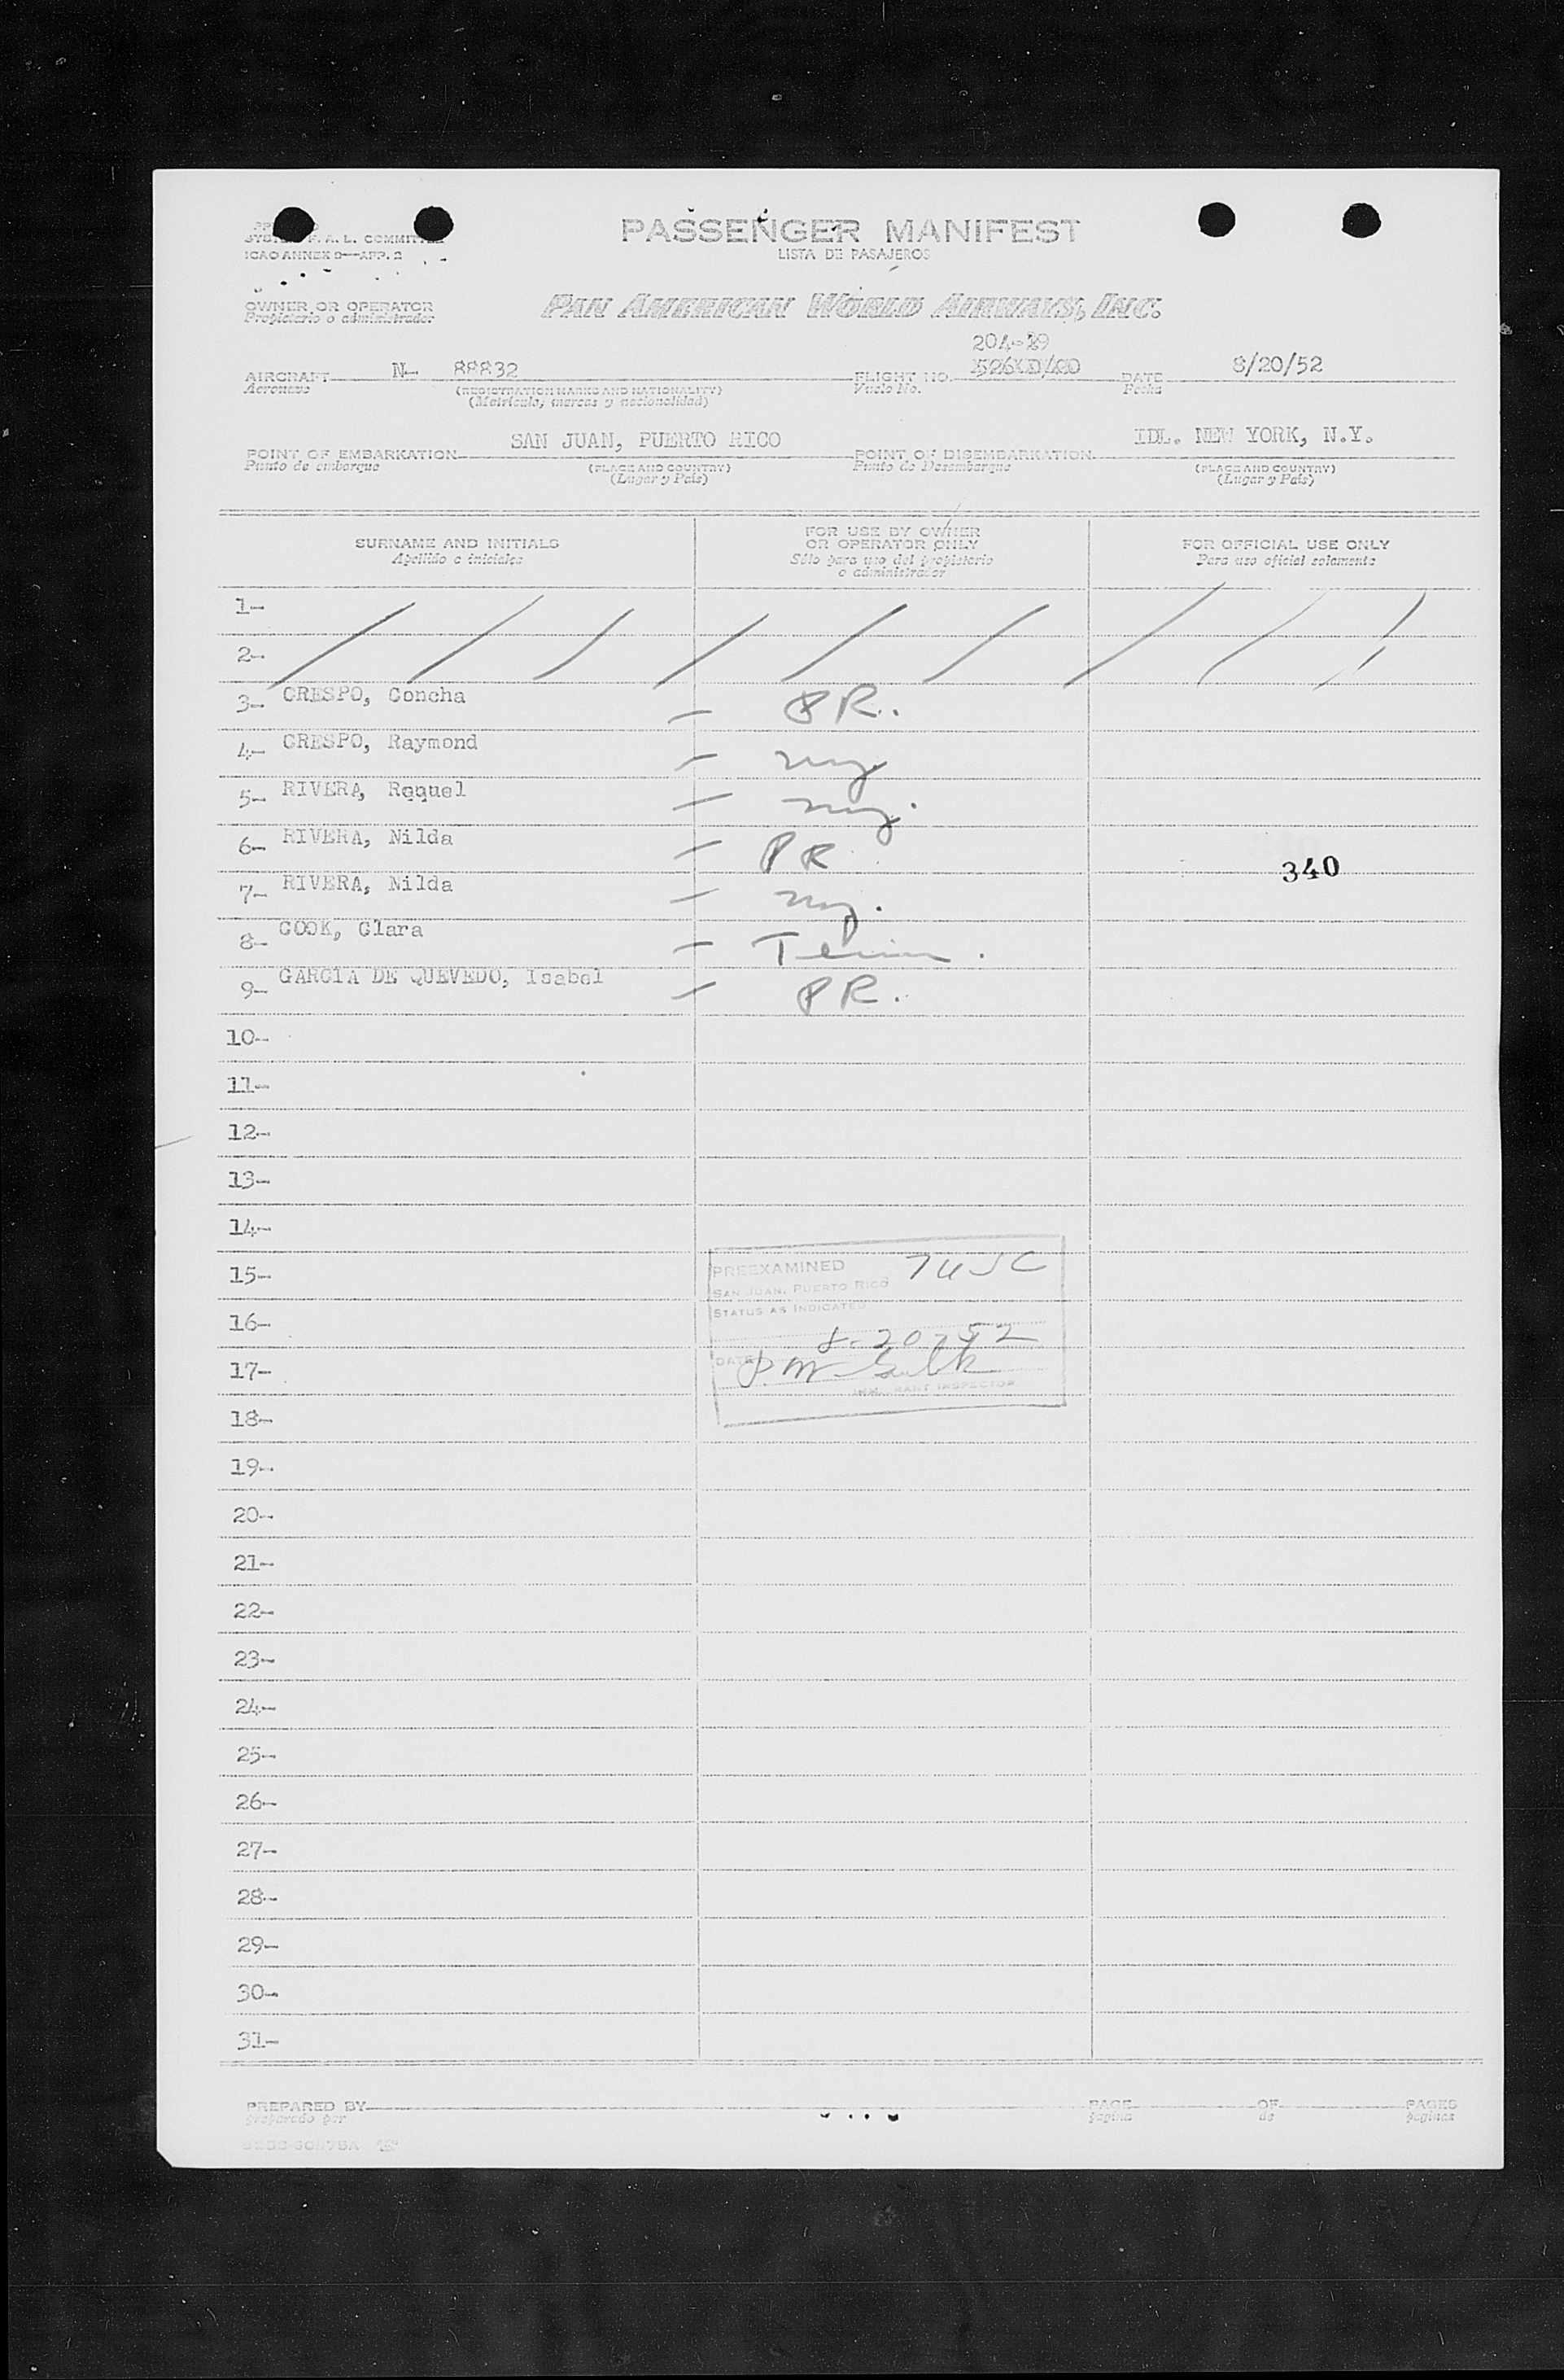 PASSENGER MANIFEST
LISTA DE PASAJEROS
F.A.L. COMMITTEE
ICAO ANNEX 9—APP. 2
OWNER OR OPERATOR
Propietario o administrador
PAN AMERICAN WORLD AIRWAYS, INC.
204-
AIRCRAFT N- 88832 FLIGHT NO. DATE 8/20/52
Aeronave (REGISTRATION MARKS AND NATIONALITY) Vuelo No. Fecha
(Matrícula, marcas y nacionalidad)
POINT OF EMBARKATION SAN JUAN, PUERTO RICO POINT OF DISEMBARKATION IDL. NEW YORK, N.Y.
Punto de embarque (PLACE AND COUNTRY) Punto de Desembarque (PLACE AND COUNTRY)
(Lugar y País) (Lugar y País)
SURNAME AND INITIALS FOR USE BY OWNER OR OPERATOR ONLY FOR OFFICIAL USE ONLY
Apellido e iniciales Sólo para uso del propietario o administrador Para uso oficial solamente
1-
2-
3- CRESPO, Concha — PR.
4- CRESPO, Raymond — ny.
5- RIVERA, Raquel — ny.
6- RIVERA, Nilda — PR
340
7- RIVERA, Nilda — ny.
8- COOK, Clara —
9- GARCIA DE QUEVEDO, Isabel — PR.
10-
11-
12-
13-
14-
15- PREEXAMINED 7USC
SAN JUAN, PUERTO RICO
STATUS AS INDICATED
16-
8-20-52
17- DATE
IMMIGRANT INSPECTOR
18-
19-
20-
21-
22-
23-
24-
25-
26-
27-
28-
29-
30-
31-
PREPARED BY PAGE OF PAGES
preparado por pagina de paginas